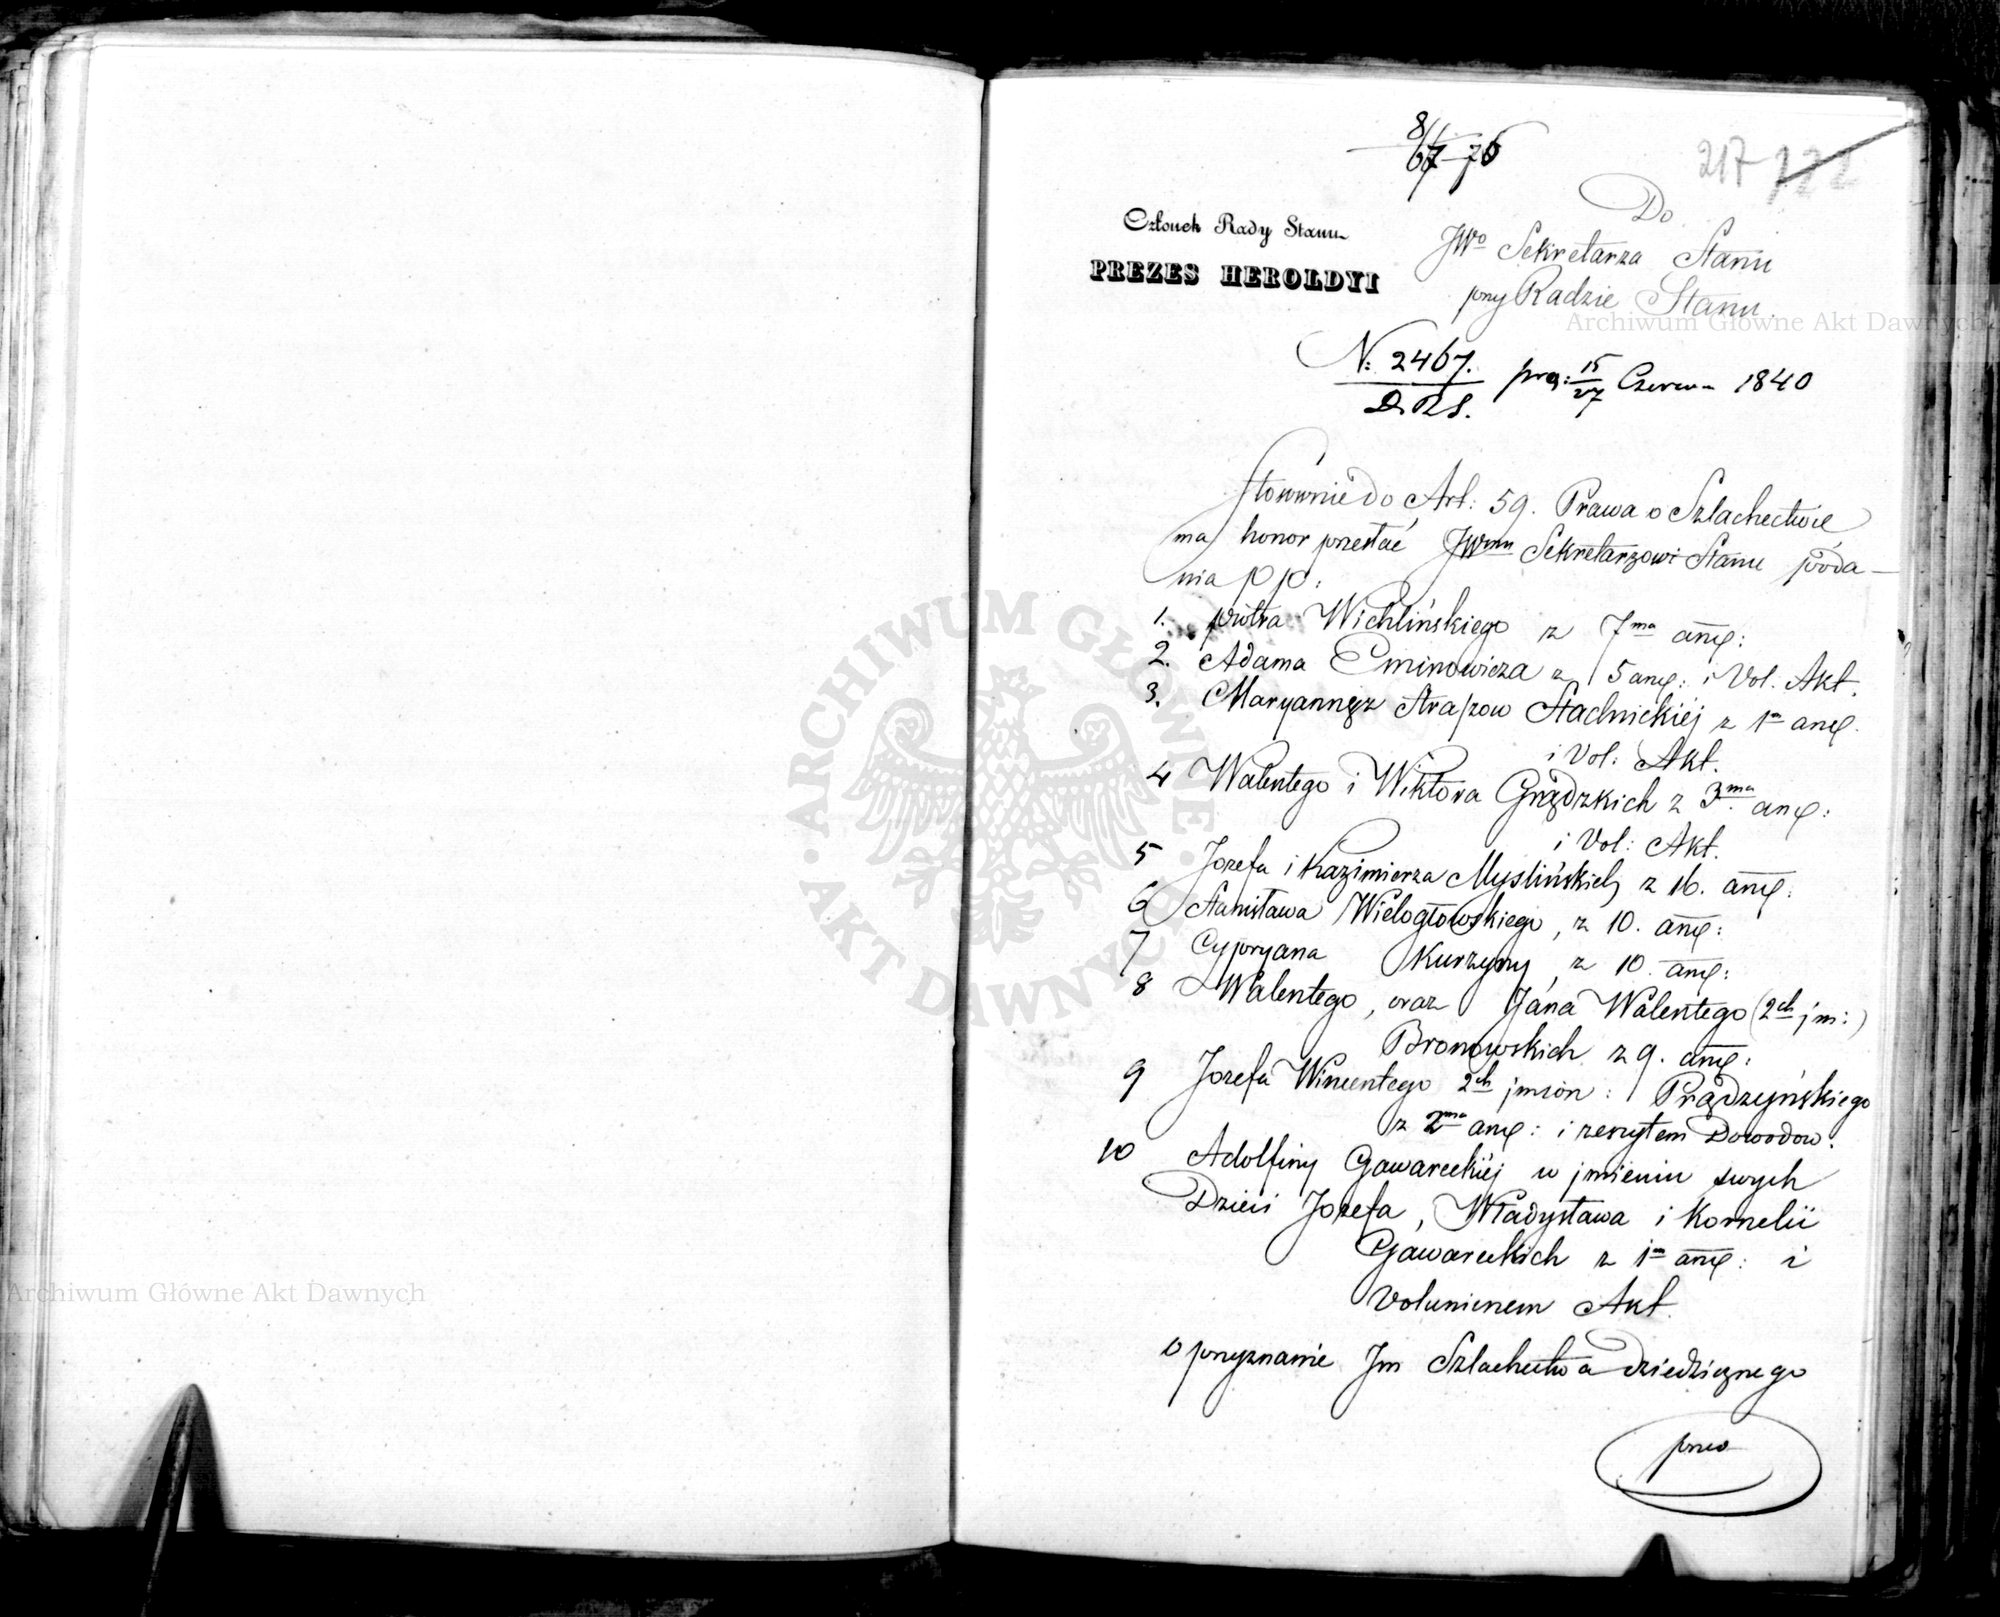 217 122
Członek Rady Stanu
PREZES HEROLDYI
Do
JWo Sekretarza Stanu
przy Radzie Stanu.
N: 2467. prez: 15/27 Czerwca 1840
D. R S.
Stosownie do Art: 59. Prawa o Szlachectwie
ma honor przesłać JWmu Sekretarzowi Stanu poda-
nia pp:
1. Piotra Wichlińskiego z 7ma anę:
2. Adama Eminowicza z 5 anę: i Vol. Akt.
3. Maryanny z Straszow Stadnickiéj z 1m anę.
i Vol: Akt.
4 Walentego i Wiktora Grądzkich z 3ma anę:
i Vol: Akt.
5 Jozefa i Kazimierza Myslińskich z 16. anę:
6 Stanisława Wielogłowskiego, z 10. anę:
7 Cypryana Kurzyny, z 10. anę:
8 Walentego, oraz Jána Walentego (2ch jm:)
Bronowskich z 9. anę:
9 Jozefa Wincentego 2ch jmion: Prądzyńskiego
z 2ma anę: i zeszytem Dowodow:
10 Adolfiny Gawareckiéj w jmieniu swych
Dzieci Jozefa, Władysława i Kornelii
Gawareckich z 1m anę: i
Voluminem Akt.
o przyznanie Jm Szlachectwa dziedzicznego
Archiwum Główne Akt Dawnych
Archiwum Główne Akt Dawnych
ARCHIWUM GŁÓWNE • AKT DAWNYCH •